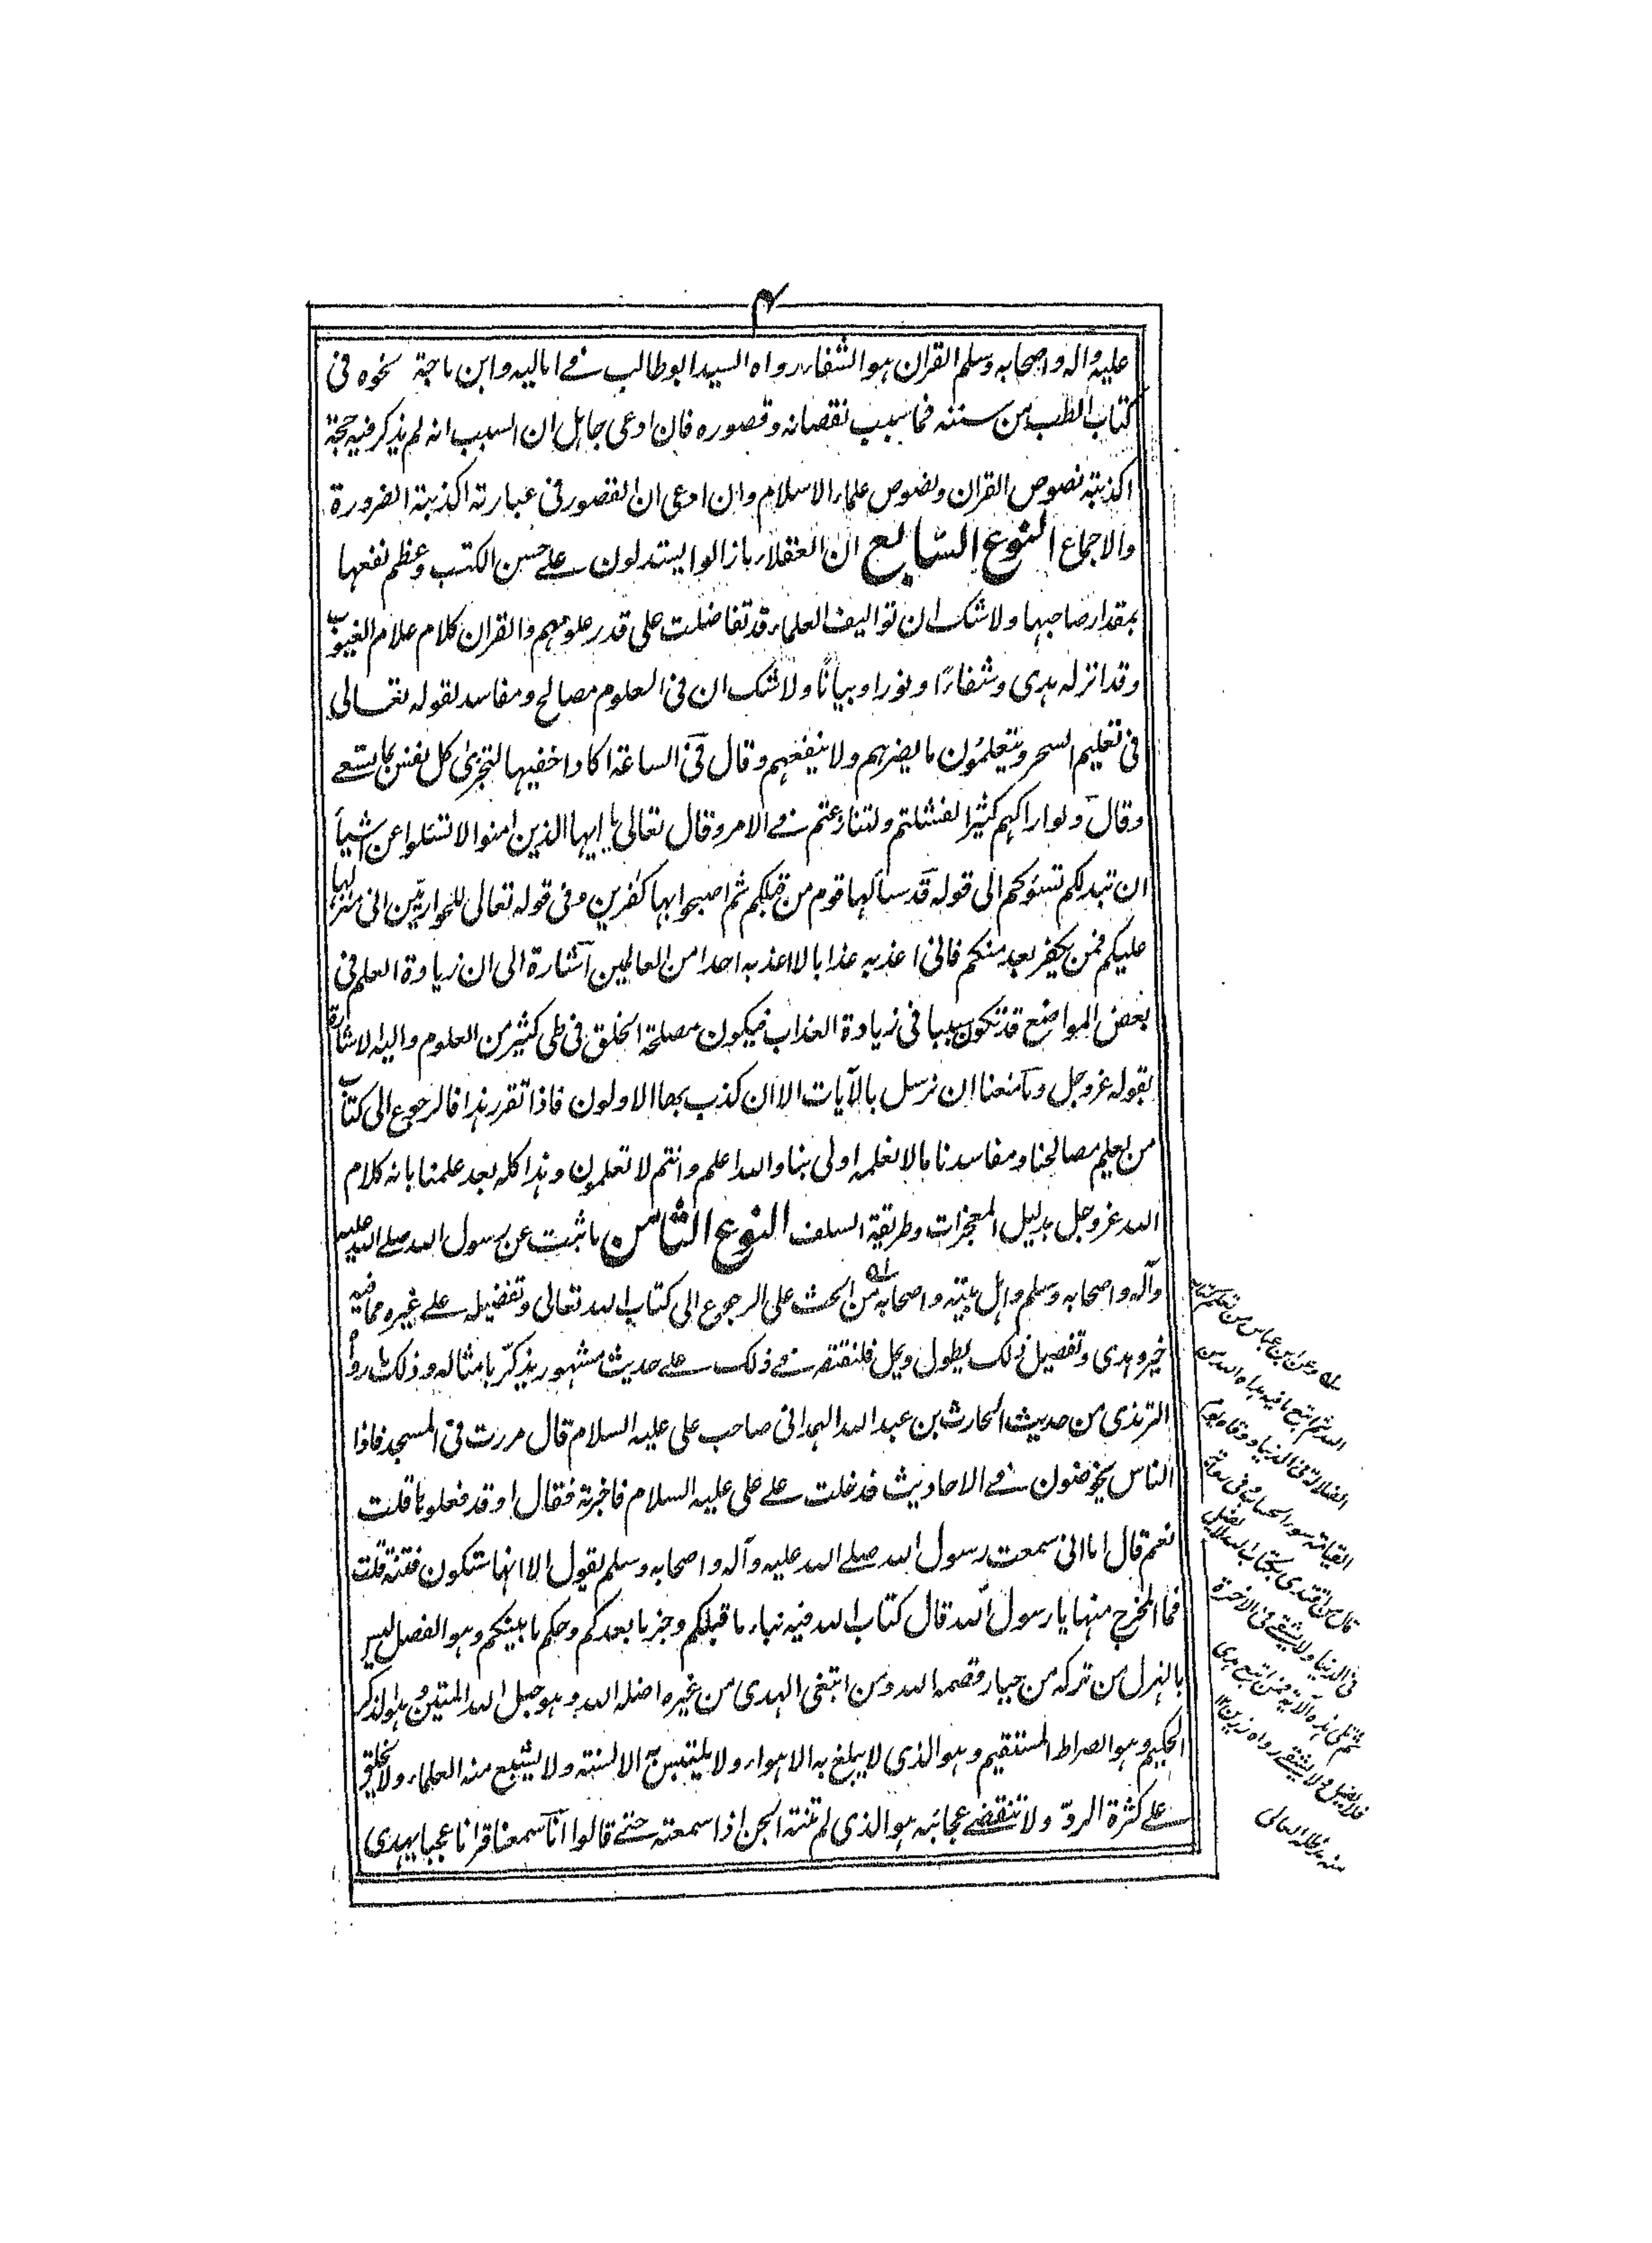 ٣
عليه واله واصحابه وسلم القران هو الشفاء رواه السيد ابو طالب في اماليه وابن ماجة نحوه في
كتاب الطب من سننه فما سبب نقصانه وقصوره فان ادعى جاهل ان السبب انه لم يذكر فيه حجة
اكذبته نصوص القران ونصوص علماء الاسلام وان ادعى ان القصور في عبارته اكذبته الضرورة
والاجماع النوع السابع ان العقلاء مازالوا يستدلون على حسن الكتب وعظم نفعها
بمقدار صاحبها ولا شك ان تواليف العلماء قد تفاضلت على قدر علومهم والقران كلام علام الغيوب
وقد انزله هدى وشفاءً ونورا وبيانًا ولا شك ان في العلوم مصالح ومفاسد لقوله تعالى
في تعليم السحر ويتعلمون ما يضرهم ولا ينفعهم وقال في الساعة اكاد اخفيها لتجزى كل نفس بما تسعى
وقال ولو اراكهم كثيرا لفشلتم ولتنازعتم في الامر وقال تعالى يا ايها الذين امنوا لا تسئلوا عن اشياء
ان تبد لكم تسؤكم الى قوله قد سألها قوم من قبلكم ثم اصبحوا بها كفرين وفي قوله تعالى للحواريين اني منزلها
عليكم فمن يكفر بعد منكم فاني اعذبه عذابا لا اعذبه احدا من العالمين اشارة الى ان زيادة العلم في
بعض المواضع قد تكون سببا في زيادة العذاب فيكون مصلحة الخلق في طي كثير من العلوم واليه الاشارة
بقوله عز وجل وما منعنا ان نرسل بالآيات الا ان كذب بها الاولون فاذا تقرر هذا فالرجوع الى كتاب
من يعلم مصالحنا ومفاسدنا ما لا نعلمه اولى بنا والله اعلم وانتم لا تعلمون وهذا كله بعد علمنا بانه كلام
الله عز وجل بدليل المعجزات وطريقة السلف النوع الثامن ما ثبت عن رسول الله صلى الله عليه
وآله واصحابه وسلم واهل بيته واصحابه من الحث على الرجوع الى كتاب الله تعالى وتفضيله على غيره مما فيه
خير وهدى وتفصيل ذلك يطول ويمل فلنقتصر في ذلك على حديث مشهور يذكّر بامثاله وذلك ما رواه
الترمذي من حديث الحارث بن عبد الله الهمداني صاحب علي عليه السلام قال مررت في المسجد فاذا
الناس يخوضون في الاحاديث فدخلت على علي عليه السلام فاخبرته فقال اوقد فعلوها قلت
نعم قال اما اني سمعت رسول الله صلى الله عليه وآله واصحابه وسلم يقول الا انها ستكون فتنة قلت
فما المخرج منها يا رسول الله قال كتاب الله فيه نباء ما قبلكم وخبر ما بعدكم وحكم ما بينكم وهو الفصل ليس
بالهزل من تركه من جبار قصمه الله ومن ابتغى الهدى من غيره اضله الله وهو حبل الله المتين وهو الذكر
الحكيم وهو الصراط المستقيم وهو الذي لا يبلغ به الاهواء ولا يلتبس به الالسنة ولا يشبع منه العلماء ولا يخلق
على كثرة الردّ ولا تنقضي عجائبه هو الذي لم تنته الجن اذا سمعته حتى قالوا انا سمعنا قرانا عجبا يهدى
له وعن ابن عباس من تعلم كتاب
الله ثم اتبع ما فيه هداه الله من
الضلالة في الدنيا ووقاه يوم
القيامة سوء الحساب وفي رواية
قال من اقتدى بكتاب الله لا يضل
في الدنيا ولا يشقى في الاخرة
ثم تلى هذه الآية فمن اتبع هدى
فلا يضل ولا يشقى رواه رزين ١٢
منه مد ظله العالى